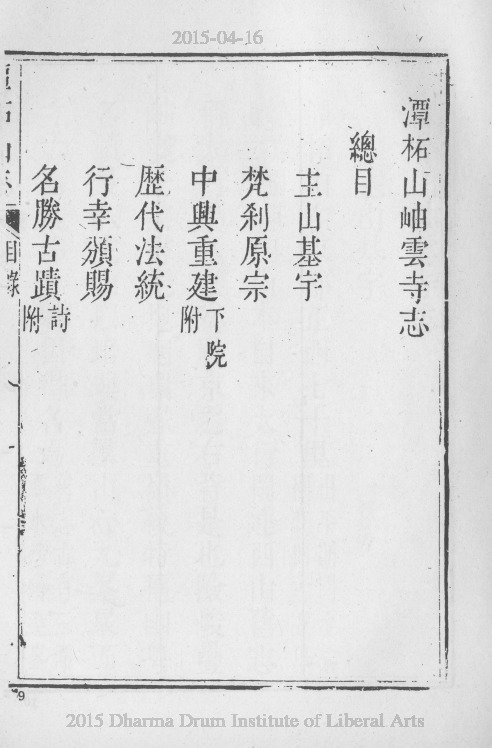 2015-04-16
潭柘山岫雲寺志
總目
主山基宇
梵刹原宗
中興重建下院附
歷代法統
行幸頒賜
名勝古蹟詩附
目錄
9
2015 Dharma Drum Institute of Liberal Arts